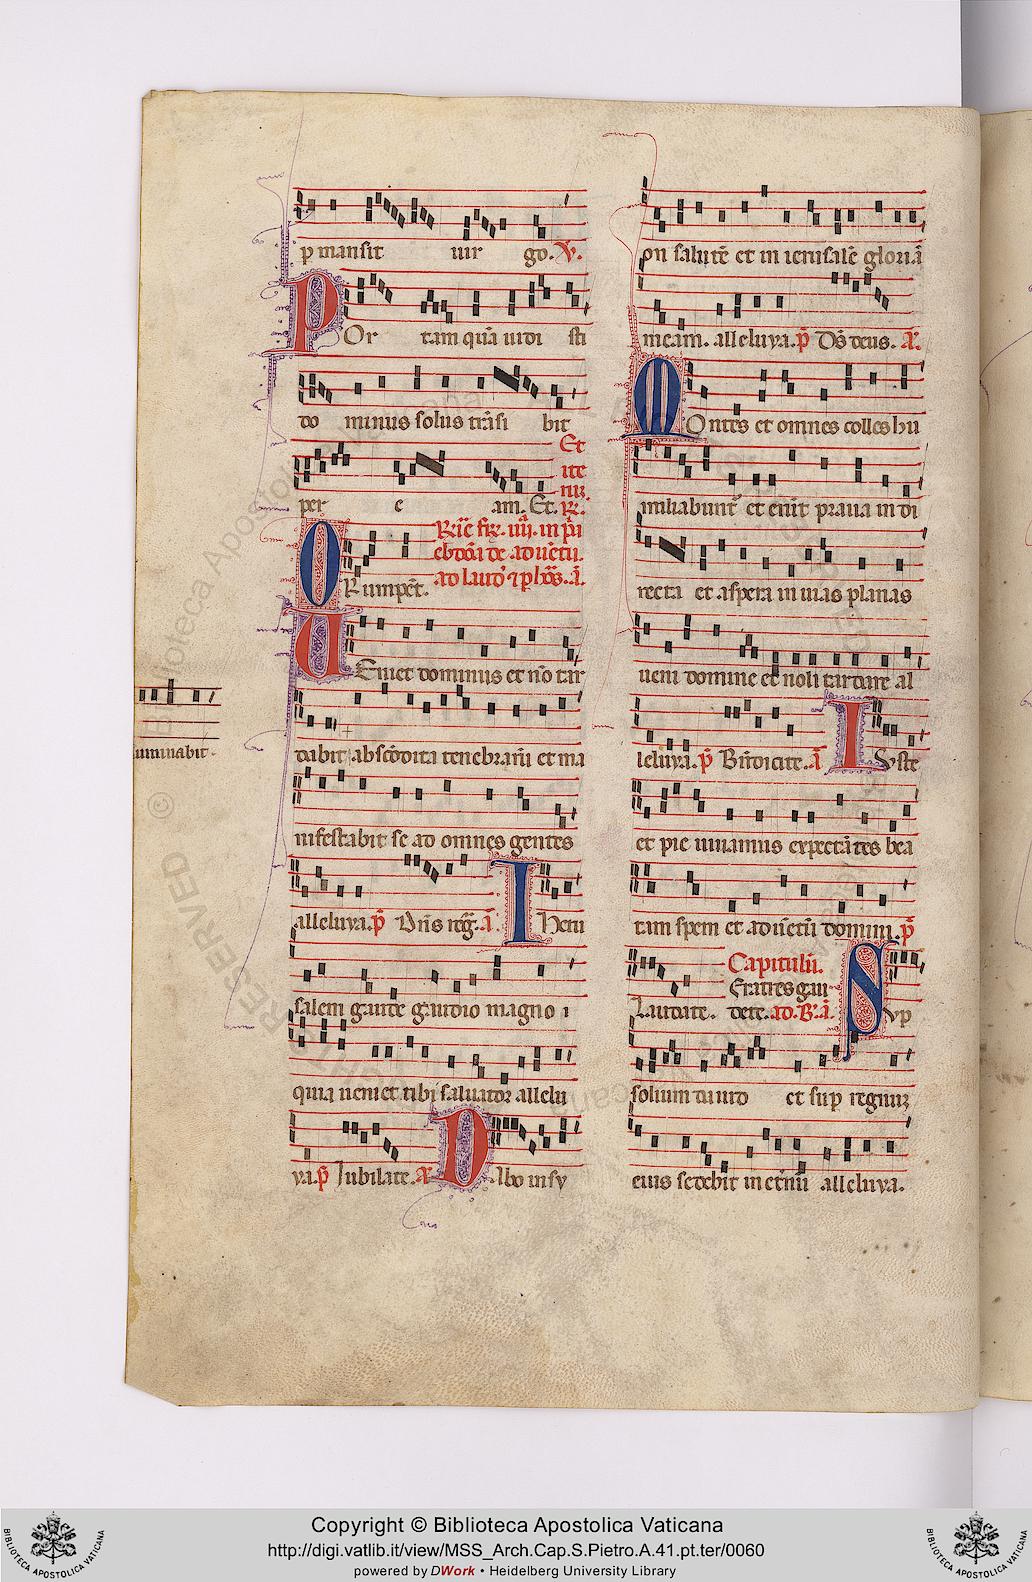 p mansit uir go. V.
POr tam quā uidi sti
do minus solus trāsi bit
Et
ite
per e am. Et. R.
eb̄doā de aduētu.
ORumpet.
UEniet dominus et nō tar
dabit abscōdita tenebrarū et ma
nifestabit se ad omnes gentes
alleluya. p̄ Dn̄s reḡ. ā IHeru
salem gaude gaudio magno
quia ueniet tibi saluator allelu
ya. p̄ Jubilate. ā DAbo in sy
on salutē et in ierusalē gloriā
meam. alleluya. p̄ Ds̄ deus. ā.
MOntes et omnes colles hu
miliabunt̄ et erūt praua in di
recta et aspera in uias planas
ueni domine et noli tardare al
leluya. p̄ Bn̄dicite. ā IUste
et pie uiuamus expectātes bea
tam spem et aduētū domini. p̄
Capitulū.
Fratres gau
Laudate. dete. ad. B. ā. SUp
solium dauid et sup regnuȝ
eius sedebit in et̄nū alleluya.
uminabit.
Copyright © Biblioteca Apostolica Vaticana
http://digi.vatlib.it/view/MSS_Arch.Cap.S.Pietro.A.41.pt.ter/0060
powered by DWork • Heidelberg University Library
BIBLIOTECA APOSTOLICA VATICANA
BIBLIOTECA APOSTOLICA VATICANA